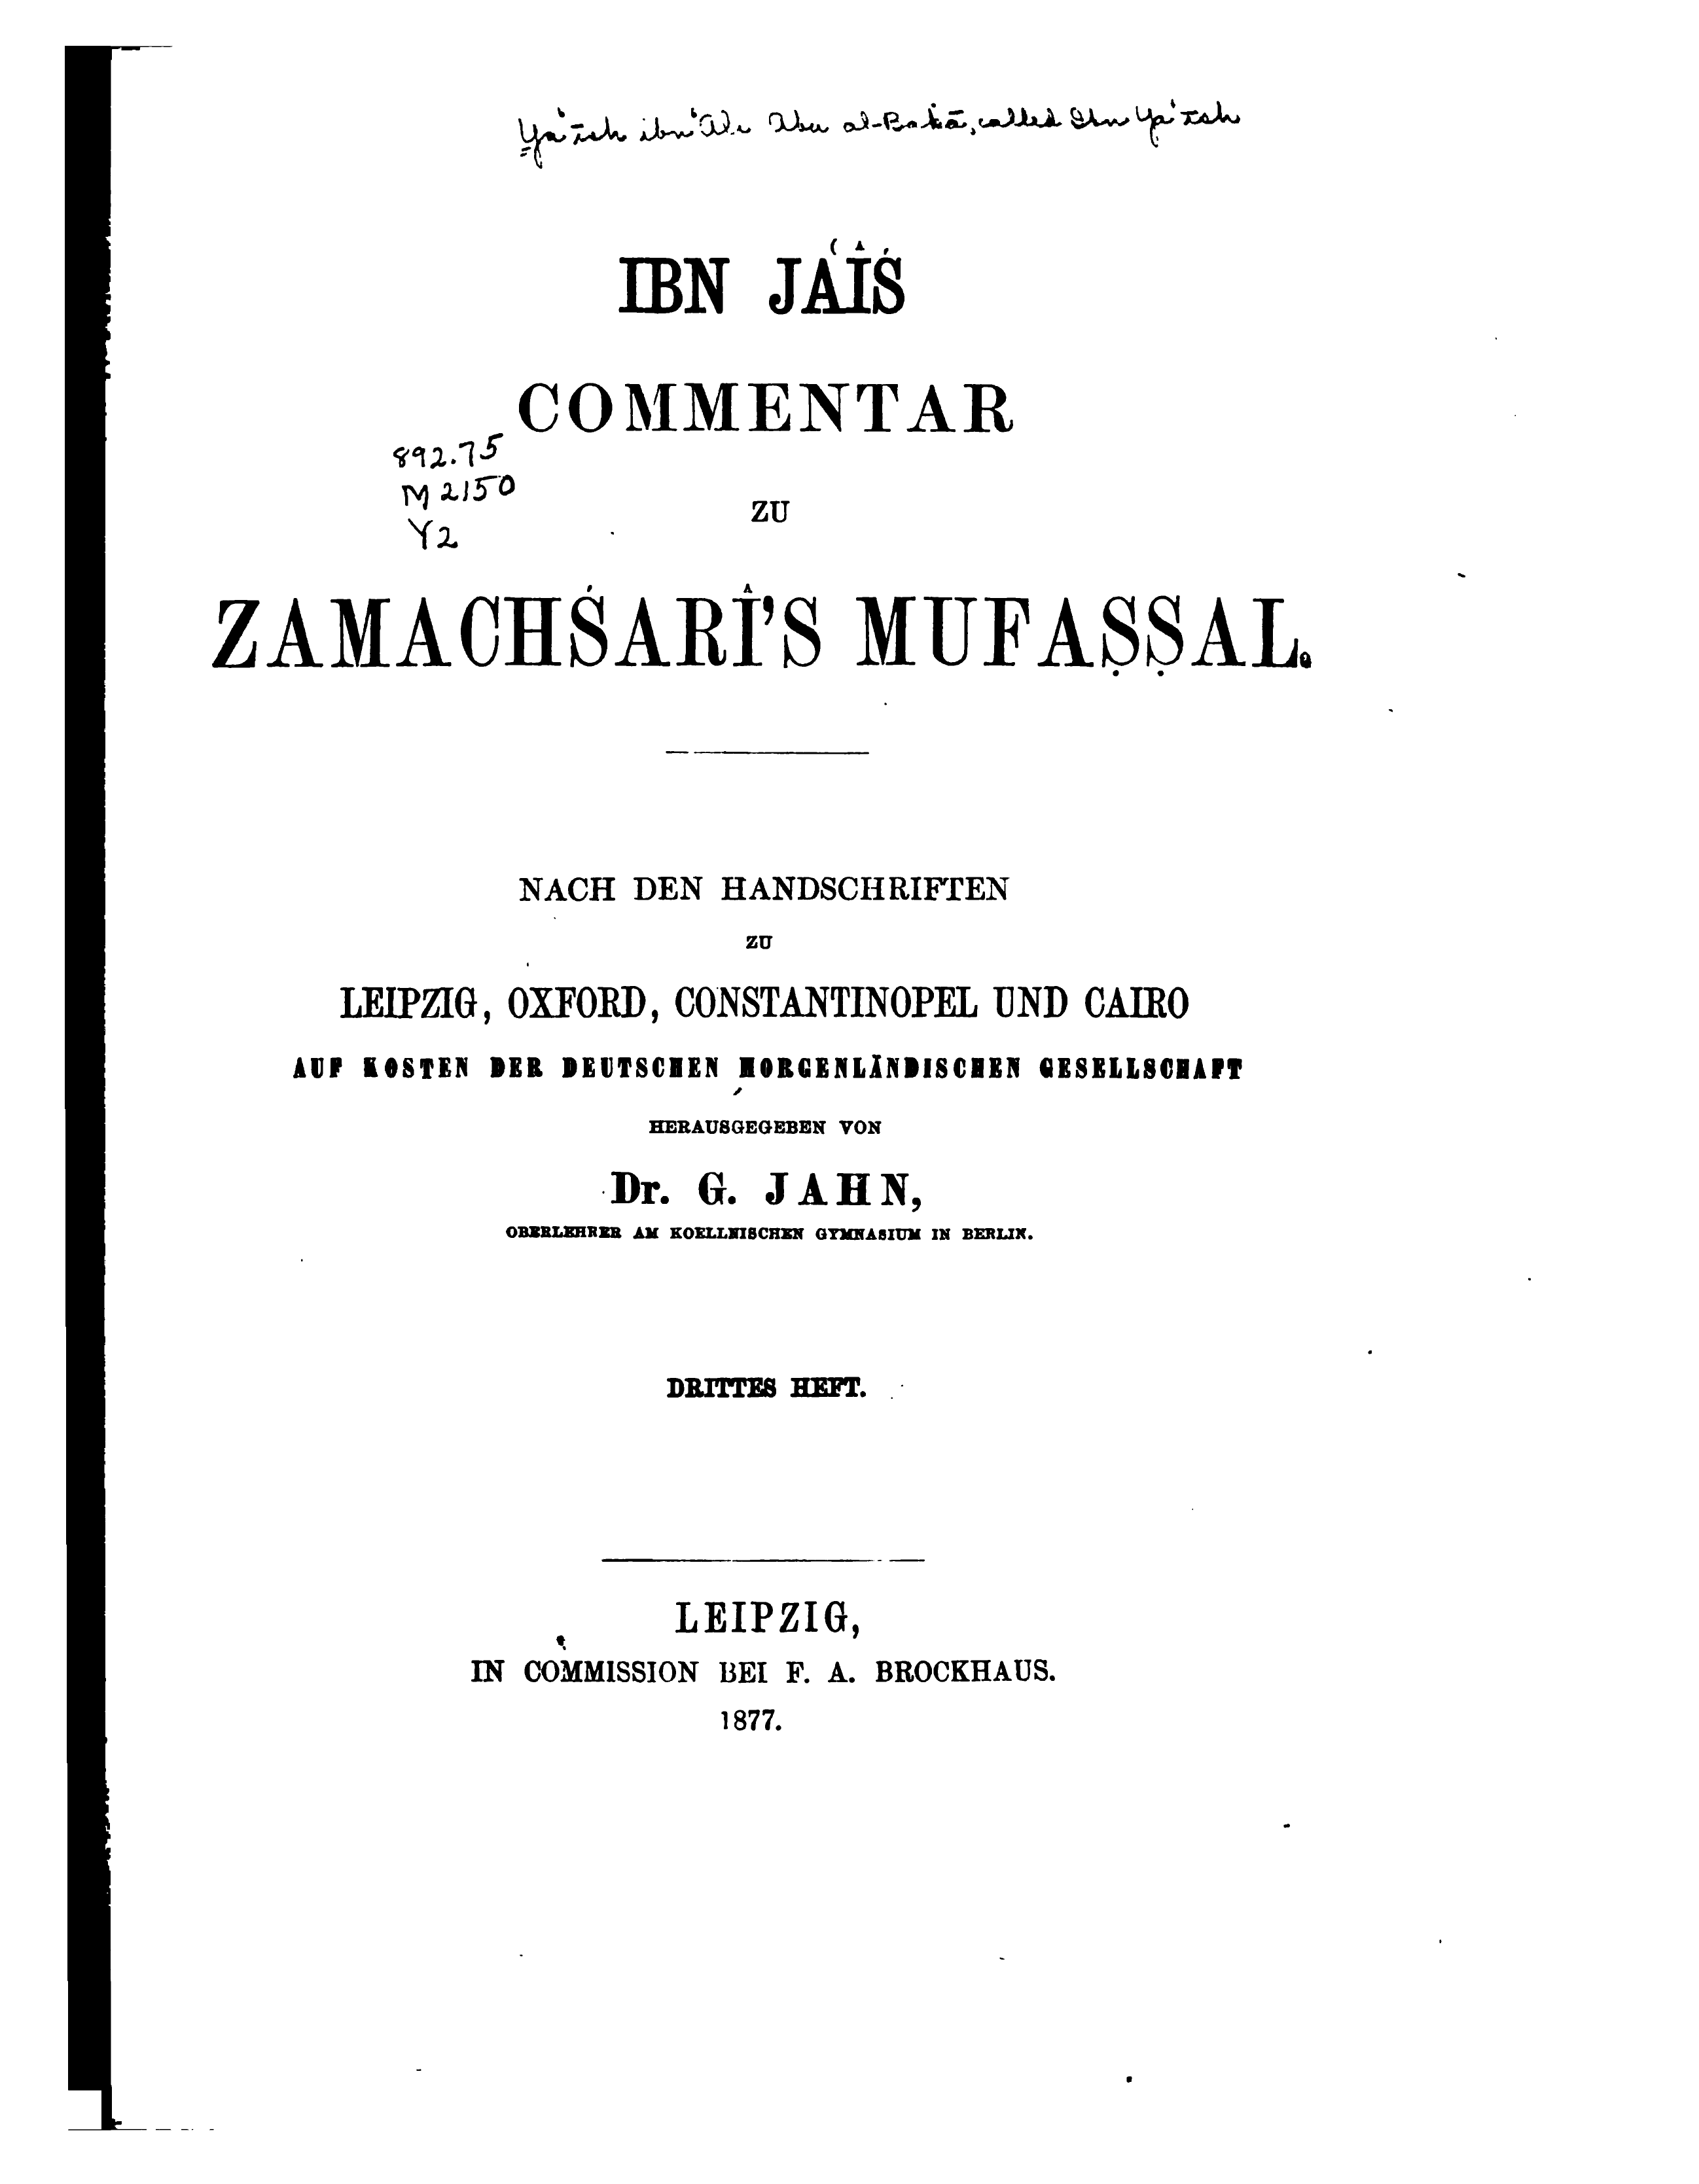 Ya'īsh ibn 'Ali Abu al-Bakā, called Ibn Ya'īsh
IBN JAʿÎŚ
COMMENTAR
892.75
M2150
Y2
ZU
ZAMACHŚARÎ'S MUFAṢṢAL.
NACH DEN HANDSCHRIFTEN
ZU
LEIPZIG, OXFORD, CONSTANTINOPEL UND CAIRO
AUF KOSTEN DER DEUTSCHEN MORGENLÄNDISCHEN GESELLSCHAFT
HERAUSGEGEBEN VON
Dr. G. JAHN,
OBERLEHRER AM KOELLNISCHEN GYMNASIUM IN BERLIN.
DRITTES HEFT.
LEIPZIG,
IN COMMISSION BEI F. A. BROCKHAUS.
1877.